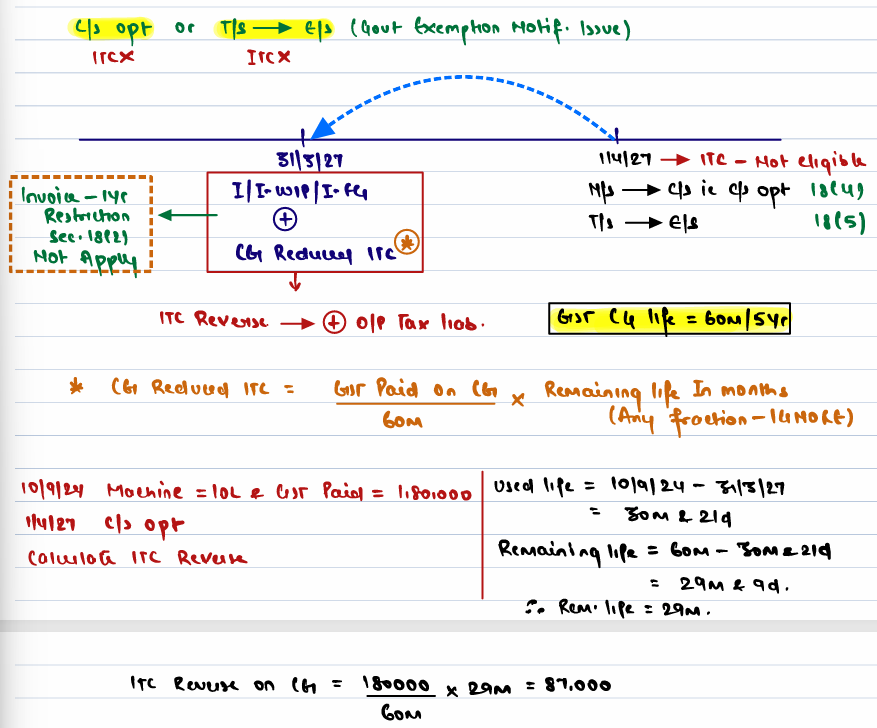 C/s opt or T/s → E/s (Govt Exemption Notif. Issue)
ITCX ITCX
31/3/27
1/4/27 → ITC - Not eligible
N/s → C/s ie C/s opt 18(4)
T/s → E/s 18(5)
I/I-WIP/I-FG
⊕
CG Reduced ITC *
Invoice - 1Yr
Restriction
Sec. 18(2)
Not Apply
ITC Reverse → ⊕ O/P Tax liab.
GST CG life = 60M/5Yr
* CG Reduced ITC = GST Paid on CG / 60M × Remaining life In months
(Any fraction - IGNORE)
10/9/24 Machine = 10L & GST Paid = 1,80,000
1/4/27 C/s opt
Calculate ITC Reverse
Used life = 10/9/24 - 31/3/27
= 30M & 21d
Remaining life = 60M - 30M & 21d
= 29M & 9d.
∴ Rem. life = 29M.
ITC Reverse on CG = 180000 / 60M × 29M = 87,000